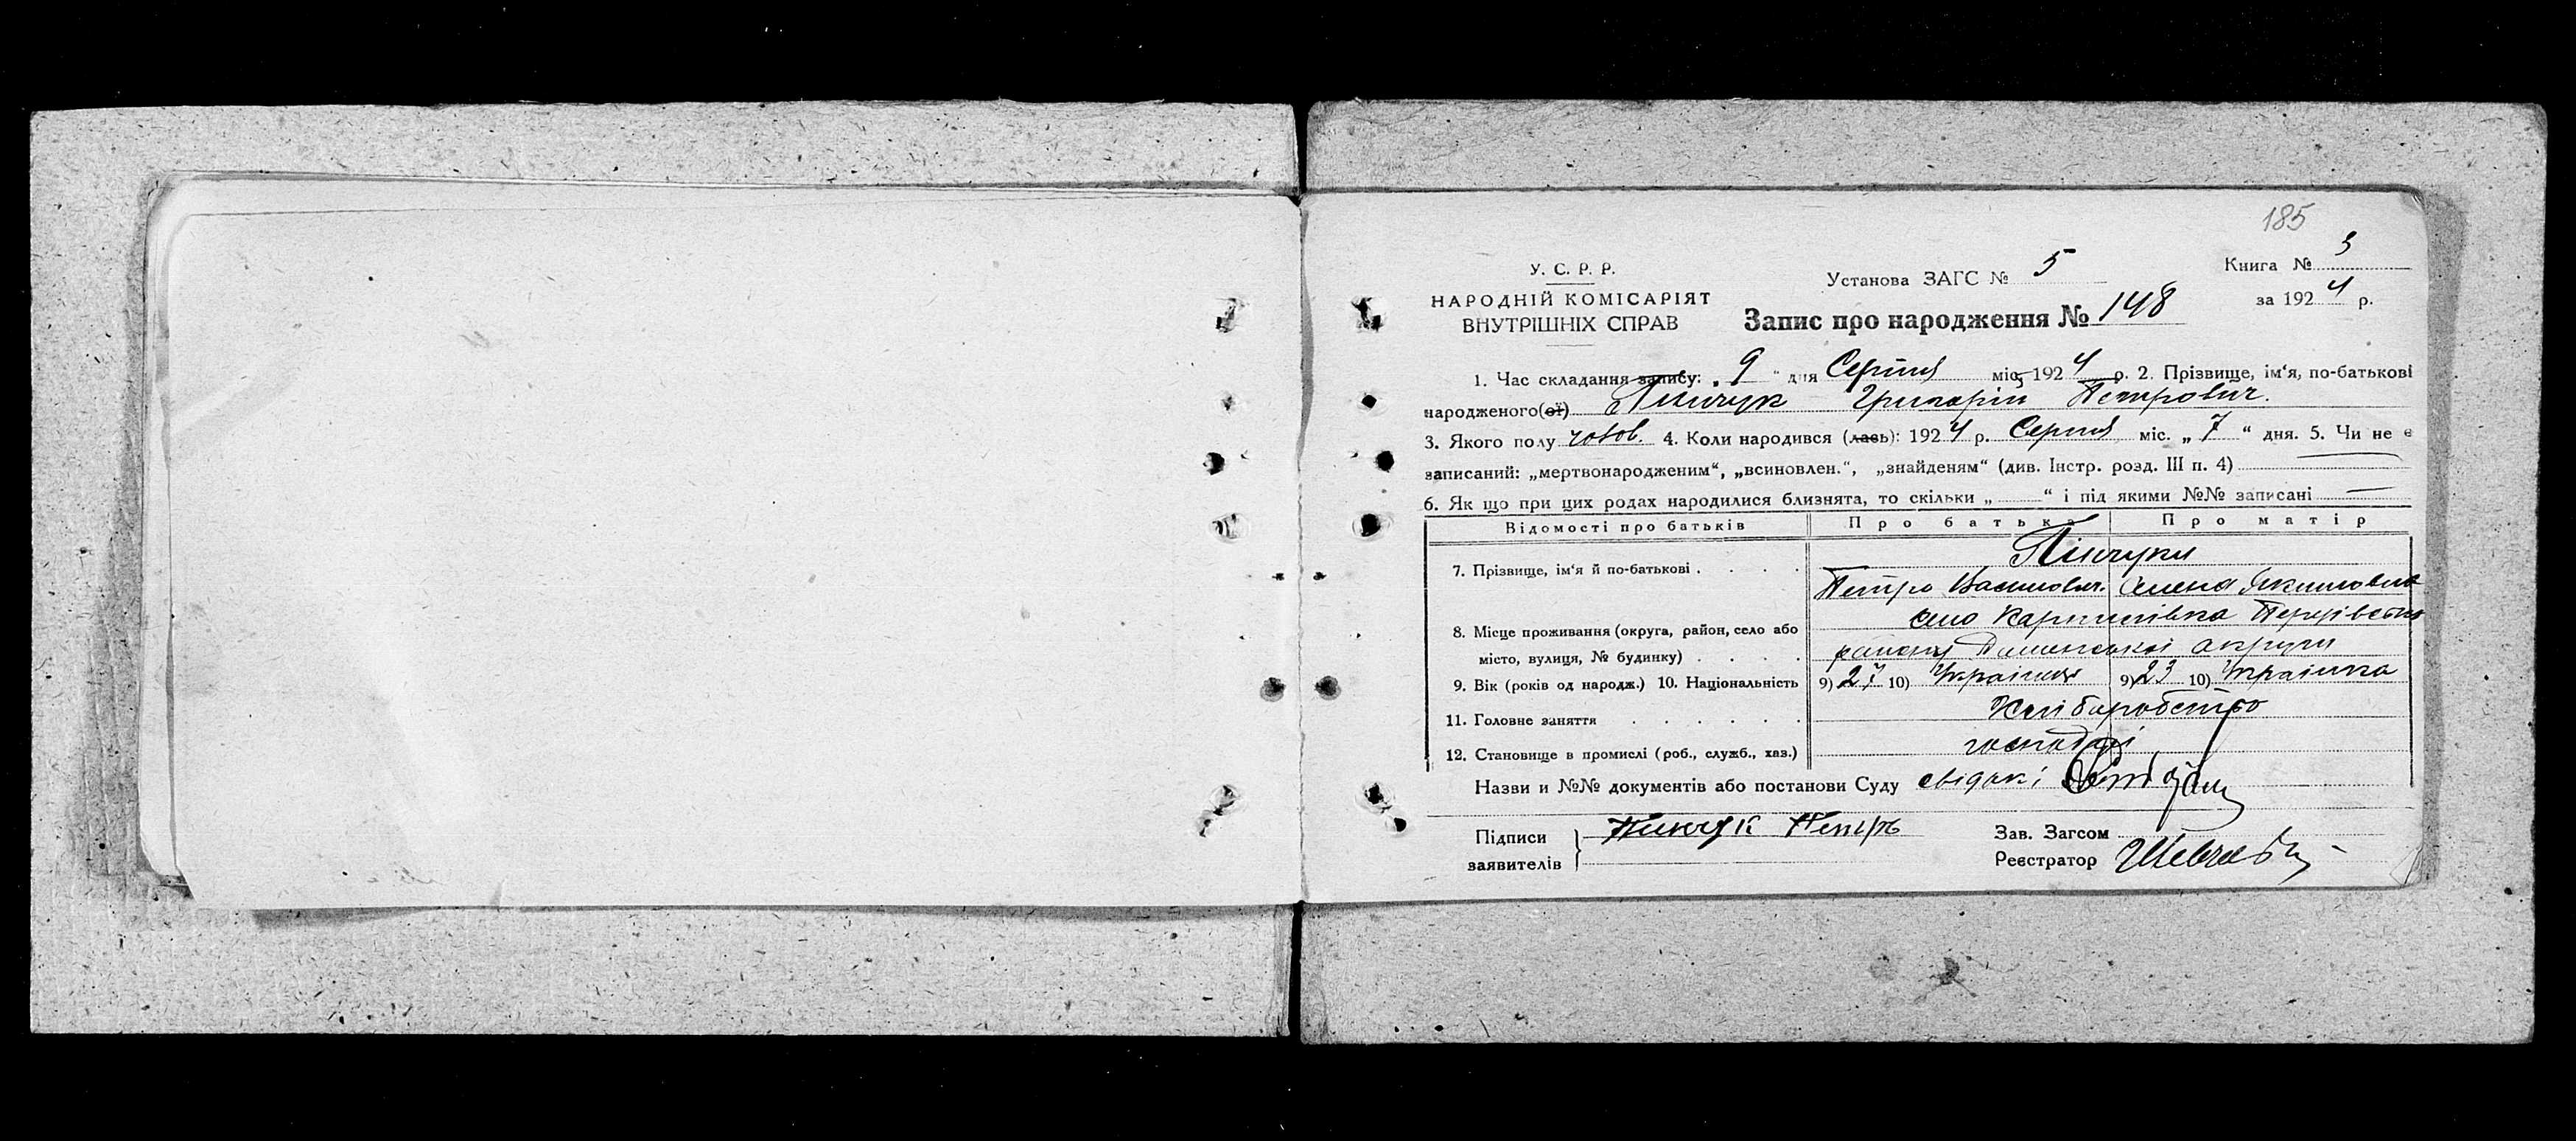 185
У. С. Р. Р.
НАРОДНІЙ КОМІСАРІЯТ
ВНУТРІШНІХ СПРАВ
Установа ЗАГС № 5
Книга № 3
за 1924 р.
Запис про народження № 148
1. Час складання запису: „9“ дня Серпня міс. 1924 р. 2. Прізвище, ім‘я, по-батькові
народженого(ої) Пінчук Григорій Петрович.
3. Якого полу чолов. 4. Коли народився (лась): 1924 р. Серпня міс. „7“ дня. 5. Чи не є
записаний: „мертвонародженим“, „всиновлен.“, „знайденям“ (див. Інстр. розд. III п. 4) —
6. Як що при цих родах народилися близнята, то скільки „ “ і під якими №№ записані —
Відомості про батьків Про батька Про матір
7. Прізвище, ім‘я й по-батькові . . . . Пінчуки
Петро Василович. Олена Якимовна
8. Місце проживання (округа, район, село або село Карпилівка
місто, вулиця, № будинку) . . . . району округи
9. Вік (років од народж.) 10. Національність 9) 27 10) Українець 9) 23 10) Українка
11. Головне заняття . . . . . . Хліборобство
12. Становище в промислі (роб., служб., хаз.) господарі
Назви и №№ документів або постанови Суду свідки:
Підписи
заявителів
Пинчук Петръ
Зав. Загсом
Реєстратор